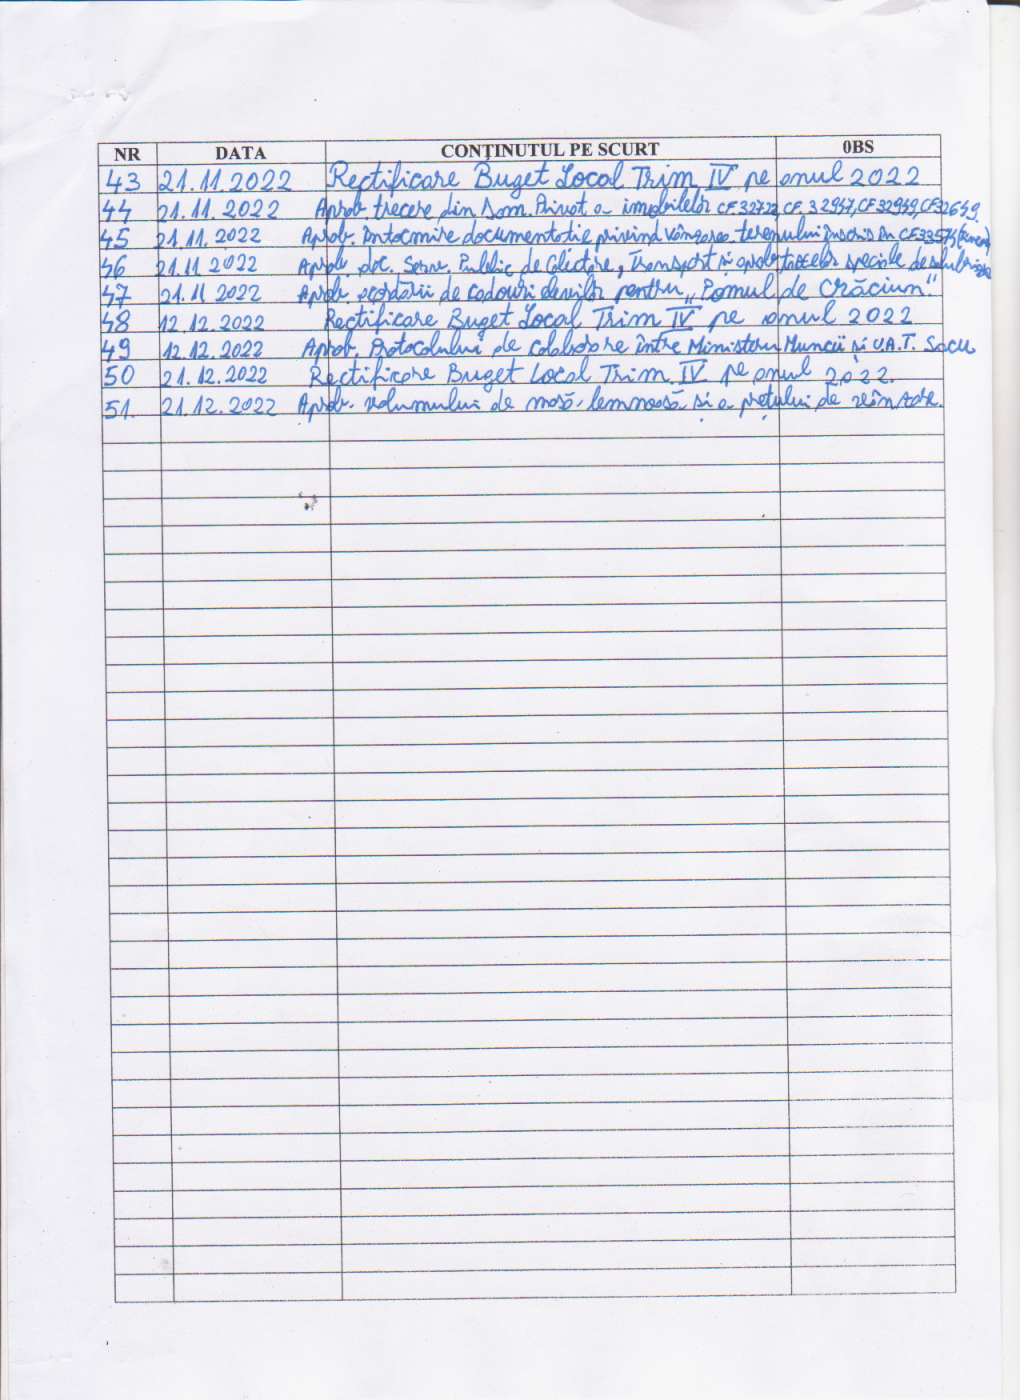 NR DATA CONȚINUTUL PE SCURT 0BS
43 21.11.2022 Rectificare Buget Local Trim IV pe anul 2022
44 21.11.2022 Aprob. trecere din Dom. Privat a imobilelor CF 32722, CF 32947, CF 32949, CF 32659.
45 21.11.2022 Aprob. Intocmire documentatie privind vânzarea terenului înscris în CF 33574
46 21.11 2022 Aprob. doc. Serv. Public de Colectare, Transport și aprob. taxelor speciale de salubrizare
47 21.11 2022 Aprob. acordării de cadouri elevilor pentru „Pomul de Crăciun."
48 12.12.2022 Rectificare Buget Local Trim IV pe anul 2022
49 12.12.2022 Aprob. Protocolului de colaborare între Ministeru Muncii și U.A.T. Sacu
50 21.12.2022 Rectificare Buget Local Trim. IV pe anul 2022.
51. 21.12.2022 Aprob. volumului de masă lemnoasă si a prețului de vânzare.